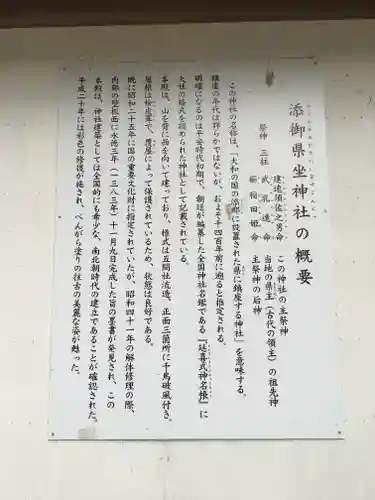 添御県坐神社の概要
祭神 三社
建速須佐之男命 この神社の主祭神
武乳速命 当地の県主(古代の領主)の祖先神
櫛稲田姫命 主祭神の后神
この神社の名称は、「大和の国の添郡に設置された県に鎮座する神社」を意味する。
鎮造の年代は詳らかではないが、およそ千四百年前に遡ると推定される。
明確になるのは平安時代初期で、朝廷が編纂した全国神社名鑑である『延喜式神名帳』に
大社の格式を認められた神社として記載されている。
本殿は、山を背に西を向いて建っており、様式は五間社流造、正面三箇所に千鳥破風付き、
屋根は桧皮葺で、覆屋によって保護されているため、状態は良好である。
既に昭和二十五年に国の重要文化財に指定されていたが、昭和四十一年の解体修理の際、
内部の壁板面に永徳三年(一三八三年)十一月九日完成した旨の墨書が発見され、この
本殿は、神社建築としては全国的にも希少な、南北朝時代の建立であることが確認された。
平成二十年には彩色の修復が施され、べんがら塗りの往古の美麗な姿が甦った。